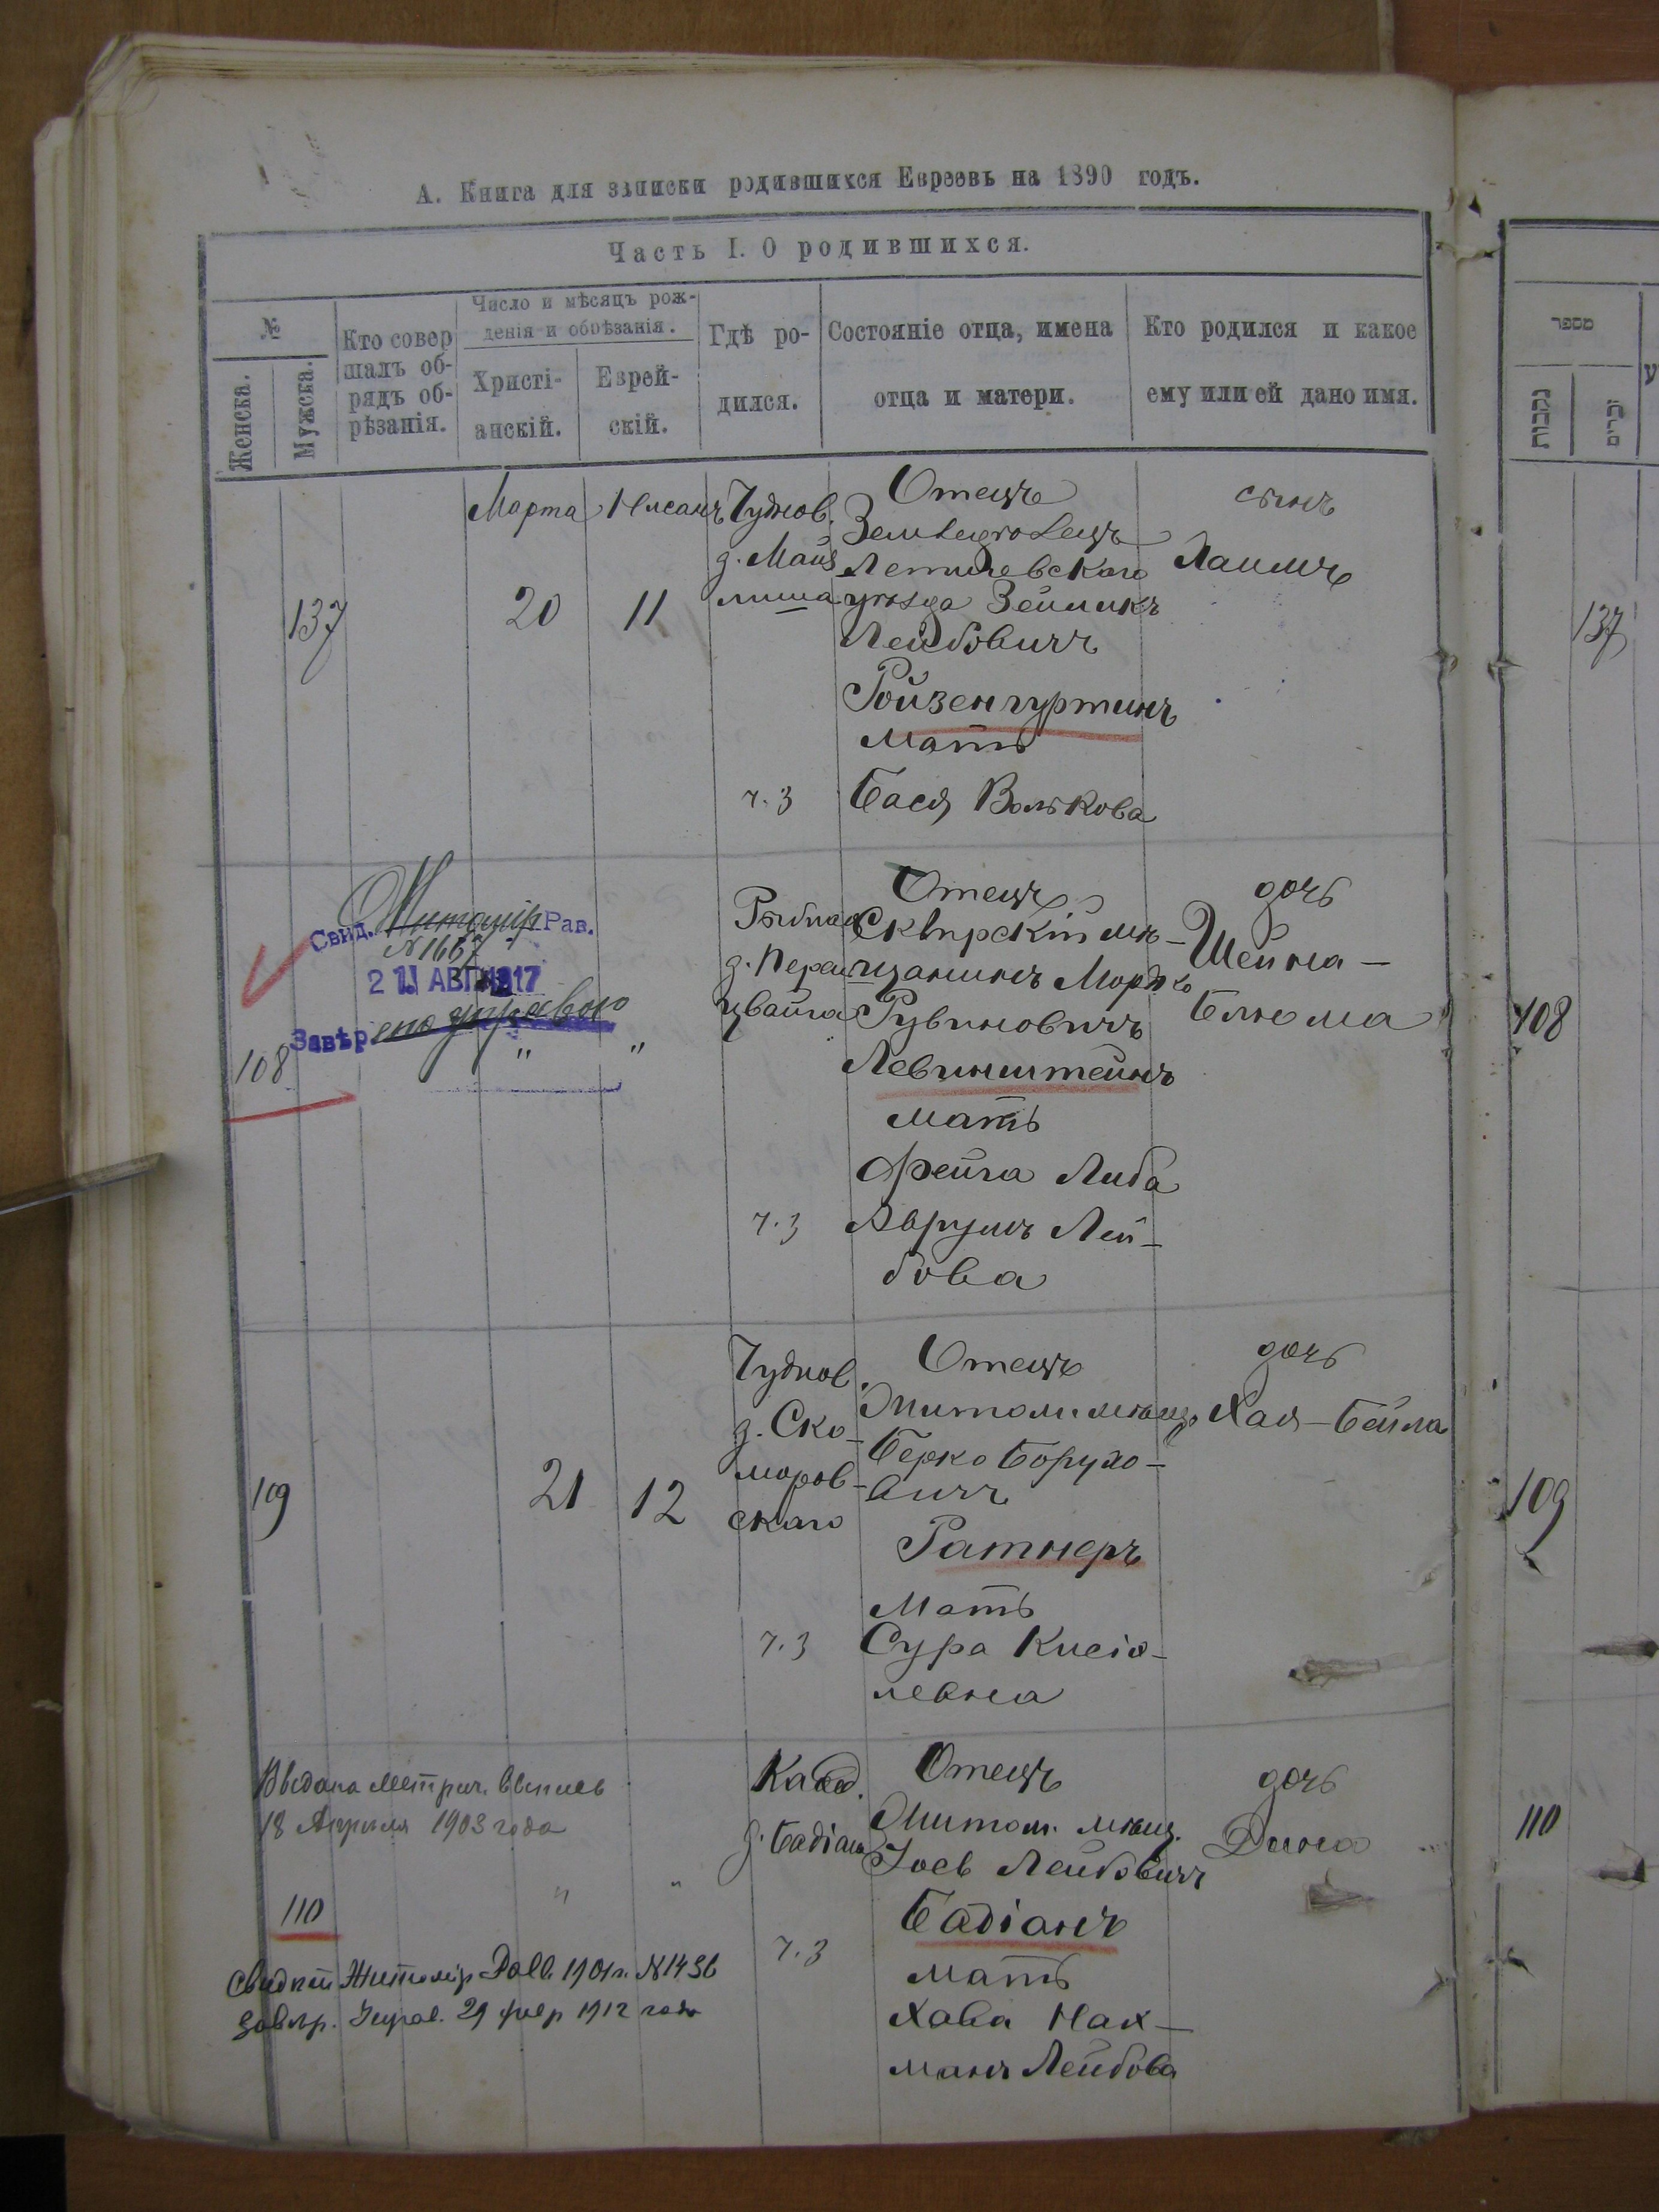 А. Книга для записки родившихся Евреевъ на 1890 годъ.
Часть I. О родившихся.
№
Женска.
Мужска.
Кто совер
шалъ об-
рядъ об-
рѣзанія.
Число и мѣсяцъ рож-
денія и обрѣзанія.
Христі-
анскій.
Еврей-
скій.
Гдѣ ро-
дился.
Состояніе отца, имена
отца и матери.
Кто родился и какое
ему или ей дано имя.
מספר
נקבות
זכרים
137
Марта
20
Нисанъ
11
Чуднов.
д. Майз
лиша
ч. 3
Отецъ
Земледѣлецъ
Летичевскаго
уѣзда Зейликъ
Лейбовичъ
Ройзенгуртинъ
мать
Бася Волькова
сынъ
Хаимъ
137
108
Свид. Житомір Рав.
N 1667
21 АВГ 1917
Завѣр
"
"
Рыбная
д. Перец
цвайга
ч. 3
Отецъ
Сквирскій мѣ-
щанинъ Мордко
Рувиновичъ
Левинштейнъ
мать
Фейга Либа
Аврумъ Лей-
бова
дочь
Шейна-
Блюма
108
109
21
12
Чуднов.
д. Ско-
моров-
скаго
ч. 3
Отецъ
Житом. мѣщ.
Берко Борухо-
вичъ
Ратнеръ
мать
Сура Кисіо-
левна
дочь
Хая-Бейла
109
Выдана Метрич. выпись
18 Апрѣля 1903 года
110
"
"
Свидѣт Житомір Рав. 1901 г. N 1436
Завѣр. Управ. 29 февр 1912 года
Кафед.
д. Бадіана
ч. 3
Отецъ
Житом. мѣщ.
Іось Лейбовичъ
Бадіанъ
мать
Хава Нах-
манъ Лейбова
дочь
Дина
110